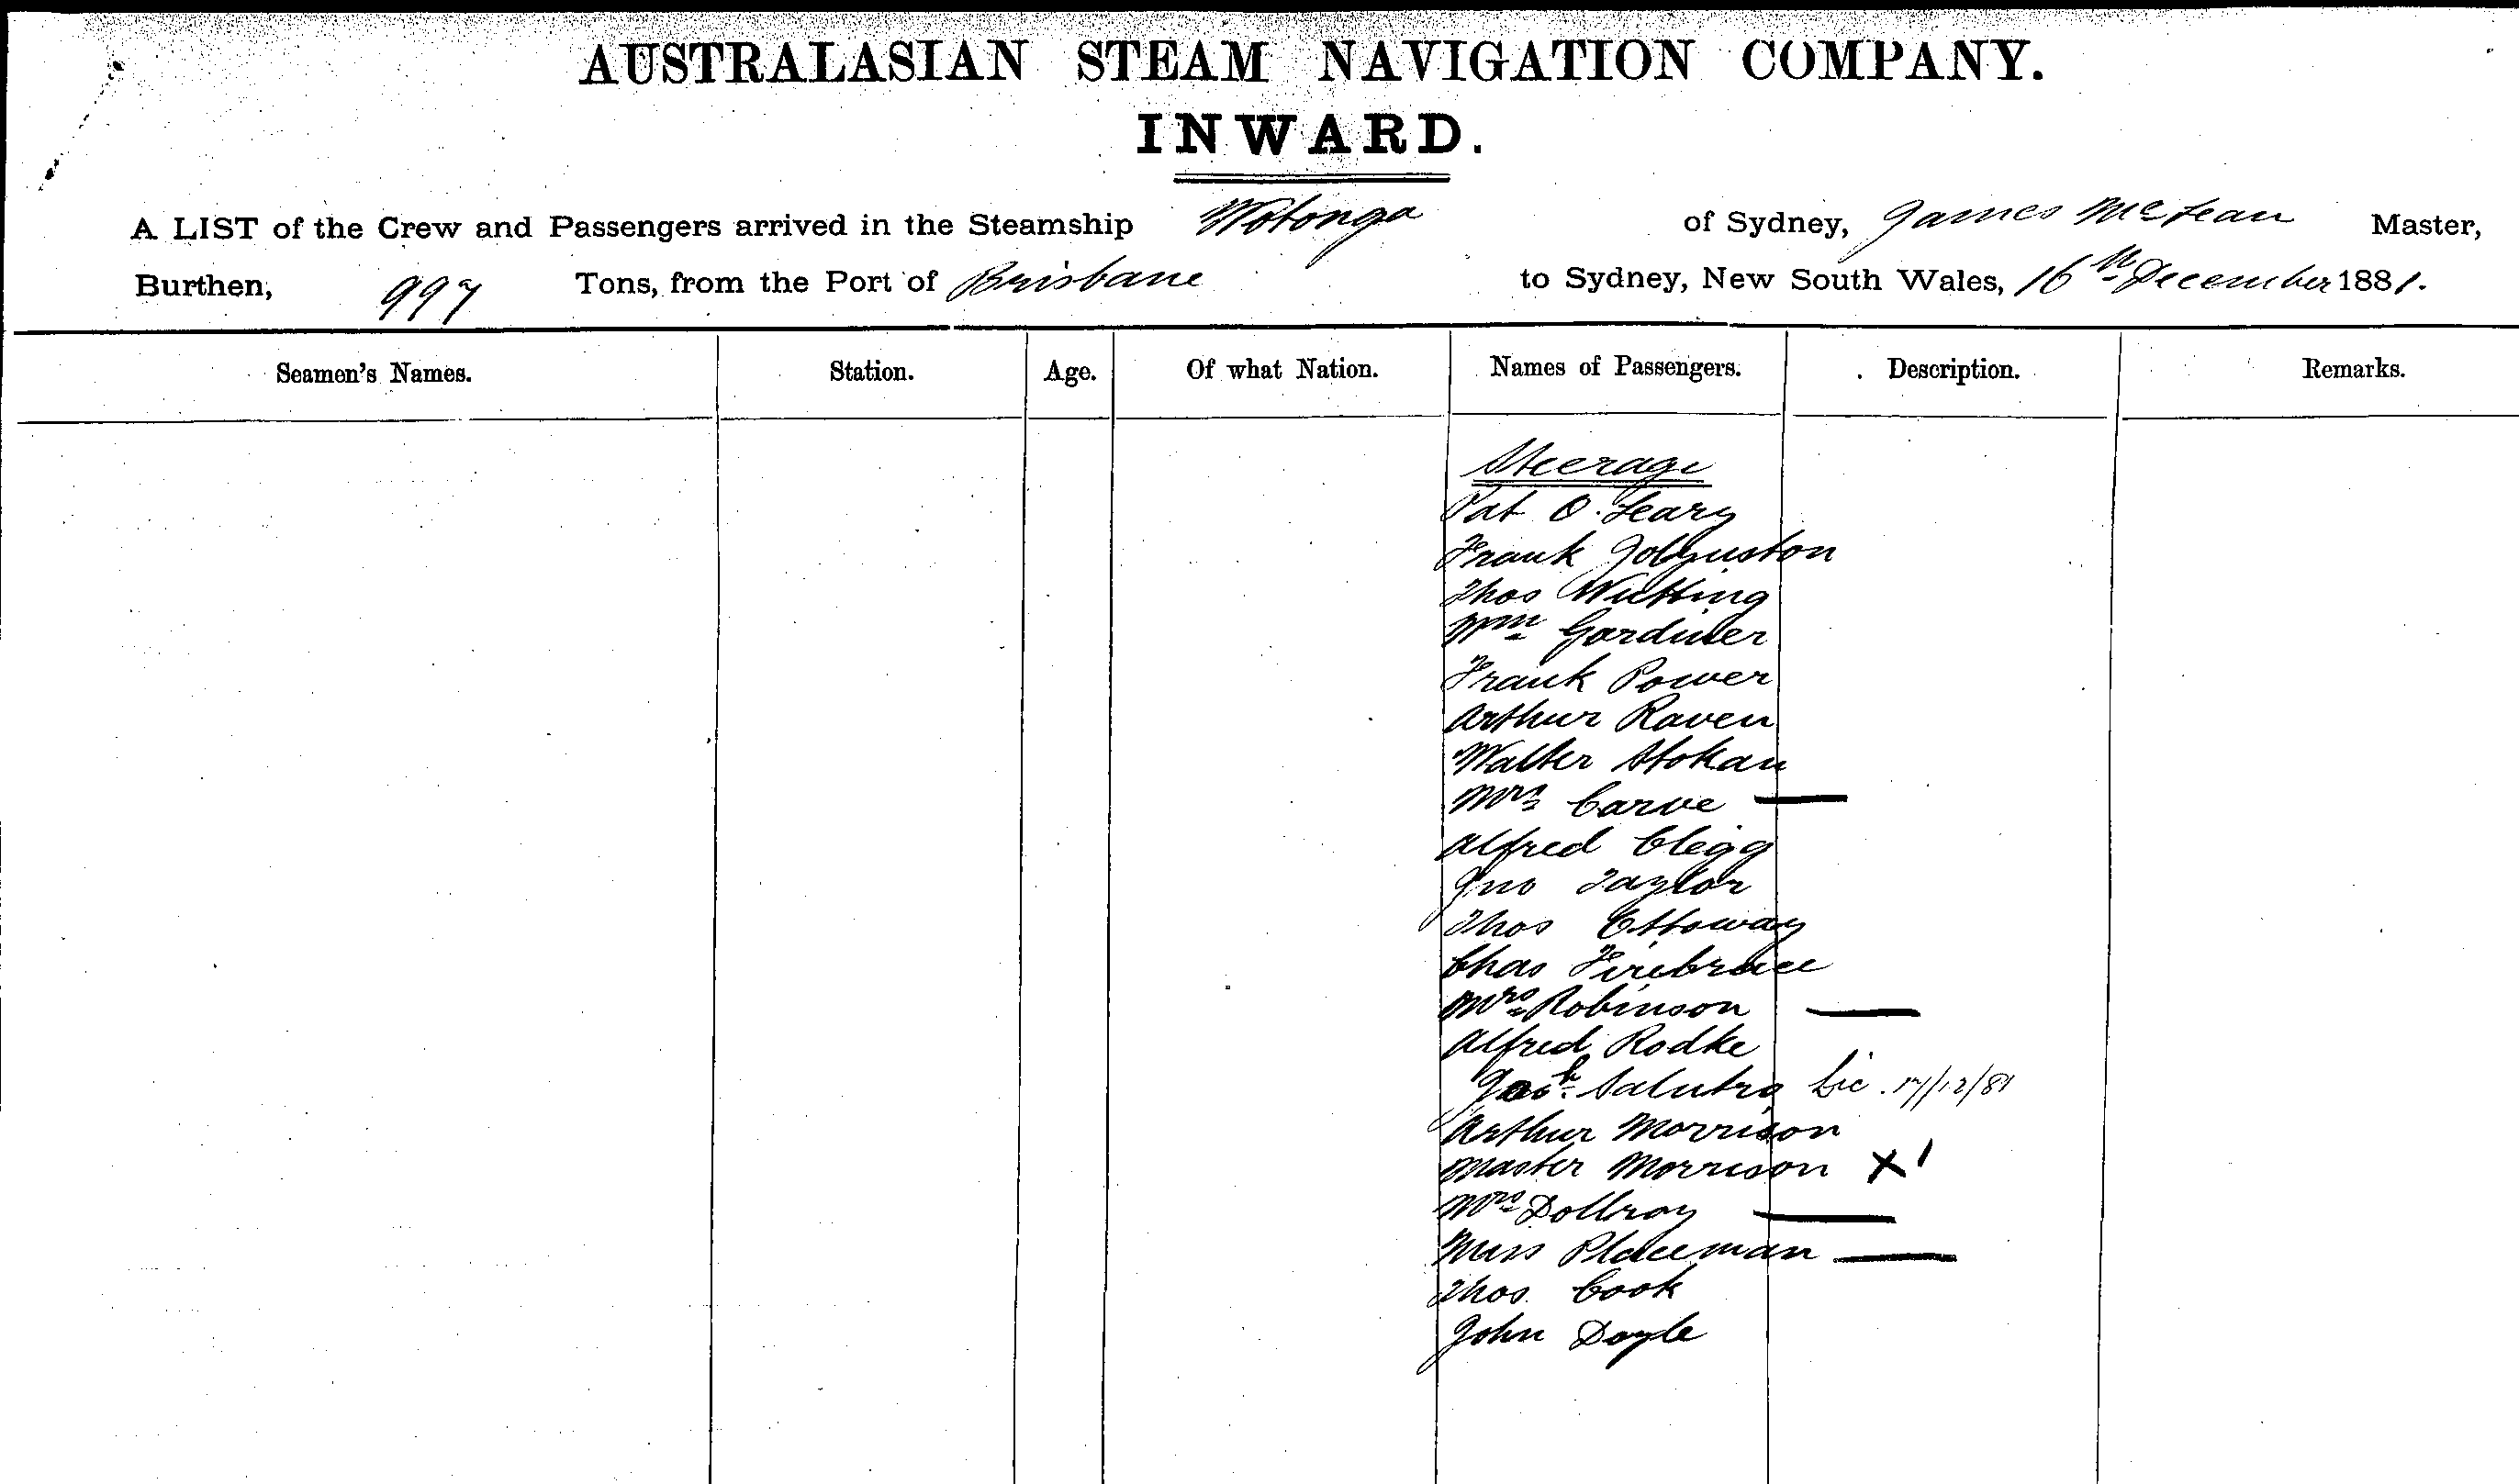 AUSTRALASIAN STEAM NAVIGATION COMPANY.
INWARD.
A LIST of the Crew and Passengers arrived in the Steamship Wotonga of Sydney, James McLean Master,
Burthen, 997 Tons, from the Port of Brisbane to Sydney, New South Wales, 16th December 1881.
Seamen's Names. Station. Age. Of what Nation. Names of Passengers. Description. Remarks.
Steerage
Pat O.Leary
Frank Johnston
Thos Nutting
Wm Gardiner
Frank Power
Arthur Raven
Walter Stokan
Mrs Carve —
Alfred Clegg
Jno Taylor
Thos Ottoway
Chas Firebrace
Mrs Robinson —
Alfred Rodke
Josh Salutra Lic. 17/12/81
Arthur Morrison
Master Morrison X 1
Mrs Dollroy —
Miss Placeman —
Thos Cook
John Doyle